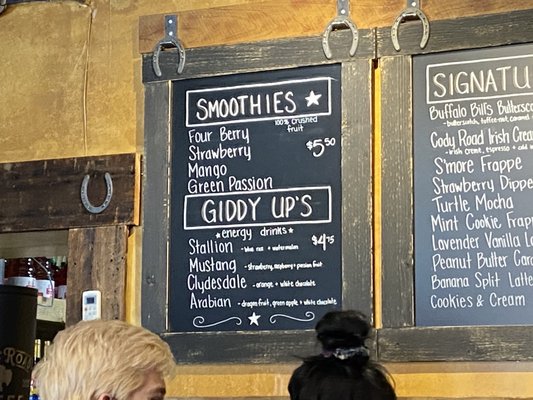 SMOOTHIES
100% crushed
fruit
Four Berry
Strawberry
Mango
Green Passion
$5.50
GIDDY UP'S
energy drinks
$4.75
Stallion - blue razz + watermelon
Mustang - strawberry, raspberry + passion fruit
Clydesdale - orange + white chocolate
Arabian - dragon fruit, green apple + white chocolate
SIGNATU
Buffalo Bill's Buttersc
- butterscotch, toffee-nut, caramel
Cody Road Irish Crea
- irish creme, espresso + cold
S'more Frappe
Strawberry Dippe
Turtle Mocha
Mint Cookie Frap
Lavender Vanilla La
Peanut Butter Car
Banana Split Latte
Cookies & Cream